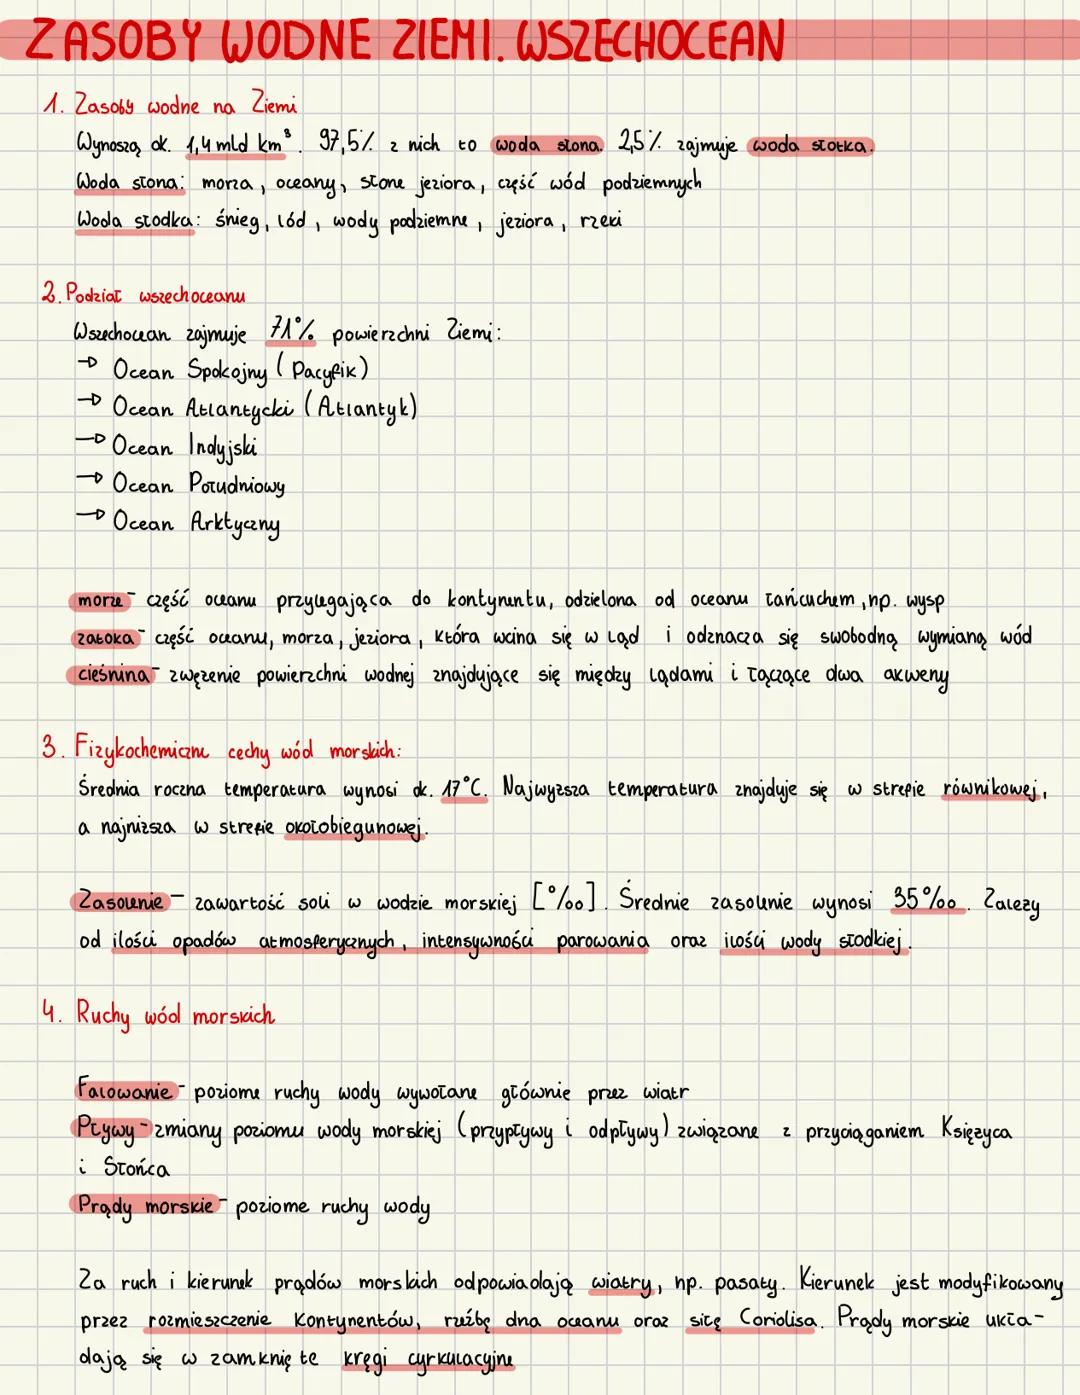 ZASOBY WODNE ZIEMI. WSZECHOCEAN
1. Zasoby wodne na Ziemi
Wynoszą ok. 1,4 mld km³. 97,5% z nich to woda słona. 2,5% zajmuje woda słotka.
Woda słona: morza, oceany, słone jeziora, część wód podziemnych
Woda słodka: śnieg, lód, wody podziemne, jeziora, rzeki
2. Podział wszechoceanu
Wszechocean zajmuje 71% powierzchni Ziemi:
→ Ocean Spokojny (Pacyfik)
→ Ocean Atlantycki (Atlantyk)
→ Ocean Indyjski
→ Ocean Południowy
→ Ocean Arktyczny
morze - część oceanu przylegająca do kontynentu, odzielona od oceanu łańcuchem, np. wysp
zatoka - część oceanu, morza, jeziora, która wcina się w ląd i odznacza się swobodną wymianą wód
cieśnina - zwężenie powierzchni wodnej znajdujące się między lądami i łączące dwa akweny
3. Fizykochemiczne cechy wód morskich:
Średnia roczna temperatura wynosi ok. 17°C. Najwyższa temperatura znajduje się w strefie równikowej,
a najniższa w strefie okołobiegunowej.
Zasolenie - zawartość soli w wodzie morskiej [‰]. Średnie zasolenie wynosi 35‰. Zależy
od ilości opadów atmosferycznych, intensywności parowania oraz ilości wody słodkiej.
4. Ruchy wód morskich
Falowanie - poziome ruchy wody wywołane głównie przez wiatr
Pływy - zmiany poziomu wody morskiej (przypływy i odpływy) związane z przyciąganiem Księżyca
i Słońca
Prądy morskie - poziome ruchy wody
Za ruch i kierunek prądów morskich odpowiadają wiatry, np. pasaty. Kierunek jest modyfikowany
przez rozmieszczenie kontynentów, rzeźbę dna oceanu oraz siłę Coriolisa. Prądy morskie ukła-
dają się w zamknięte kręgi cyrkulacyjne